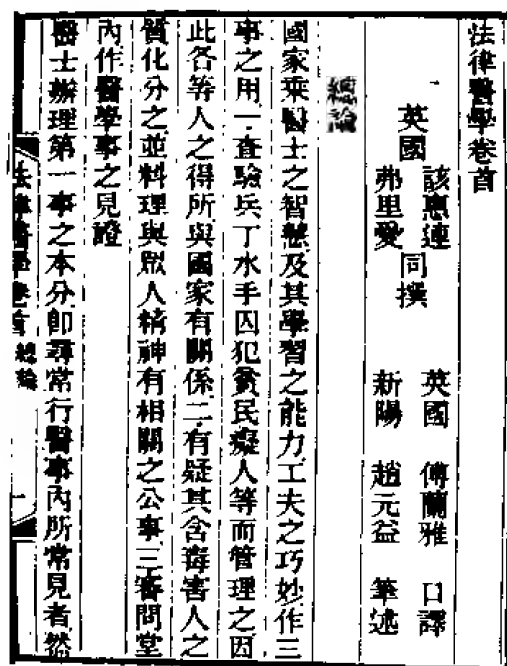 法律醫學卷首
英國 該惠連 弗里愛 同撰
英國 傅蘭雅 口譯
新陽 趙元益 筆述
總論
國家乘醫士之智慧及其學習之能力工夫之巧妙作三
事之用一查驗兵丁水手囚犯貧民癡人等而管理之因
此各等人之得所與國家有關係二有疑其含毒害人之
質化分之並料理與眾人精神有相關之公事三審問堂
內作醫學事之見證
醫士辦理第一事之本分卽尋常行醫事內所常見者然
法律醫學卷首 總論 一